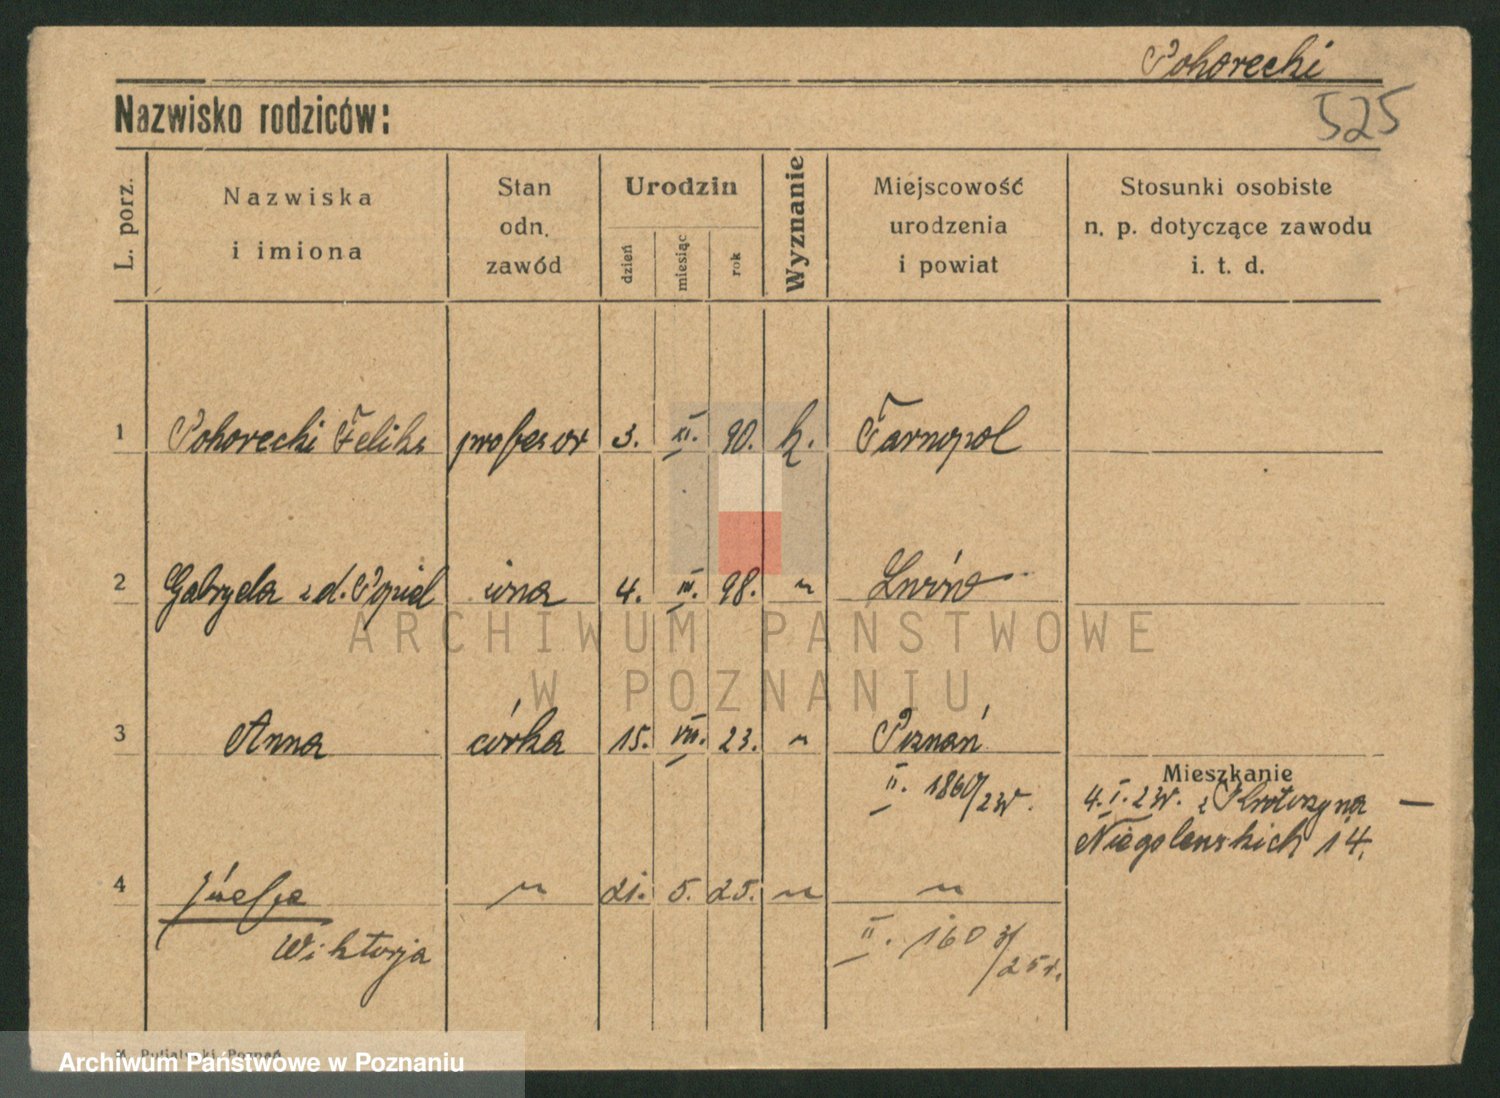 Pohorecki
Nazwisko rodziców:
525
L. porz.
Nazwiska
i imiona
Stan
odn.
zawód
Urodzin
dzień
miesiąc
rok
Wyznanie
Miejscowość
urodzenia
i powiat
Stosunki osobiste
n. p. dotyczące zawodu
i. t. d.
1 Pohorecki Feliks profesor 3. XI. 90. k. Tarnopol
2 Gabryela z d. Popiel żona 4. III. 98. " Lwów
ARCHIWUM PAŃSTWOWE
W POZNANIU
3 Anna córka 15. VII. 23. " Poznań
Mieszkanie
II. 1860/23r.
4. I. 23r. z Krotoszyna —
Niegolewskich 14.
4 Józefa " 21. 5. 25. " "
Wiktorja
II. 1603/25r.
Archiwum Państwowe w Poznaniu